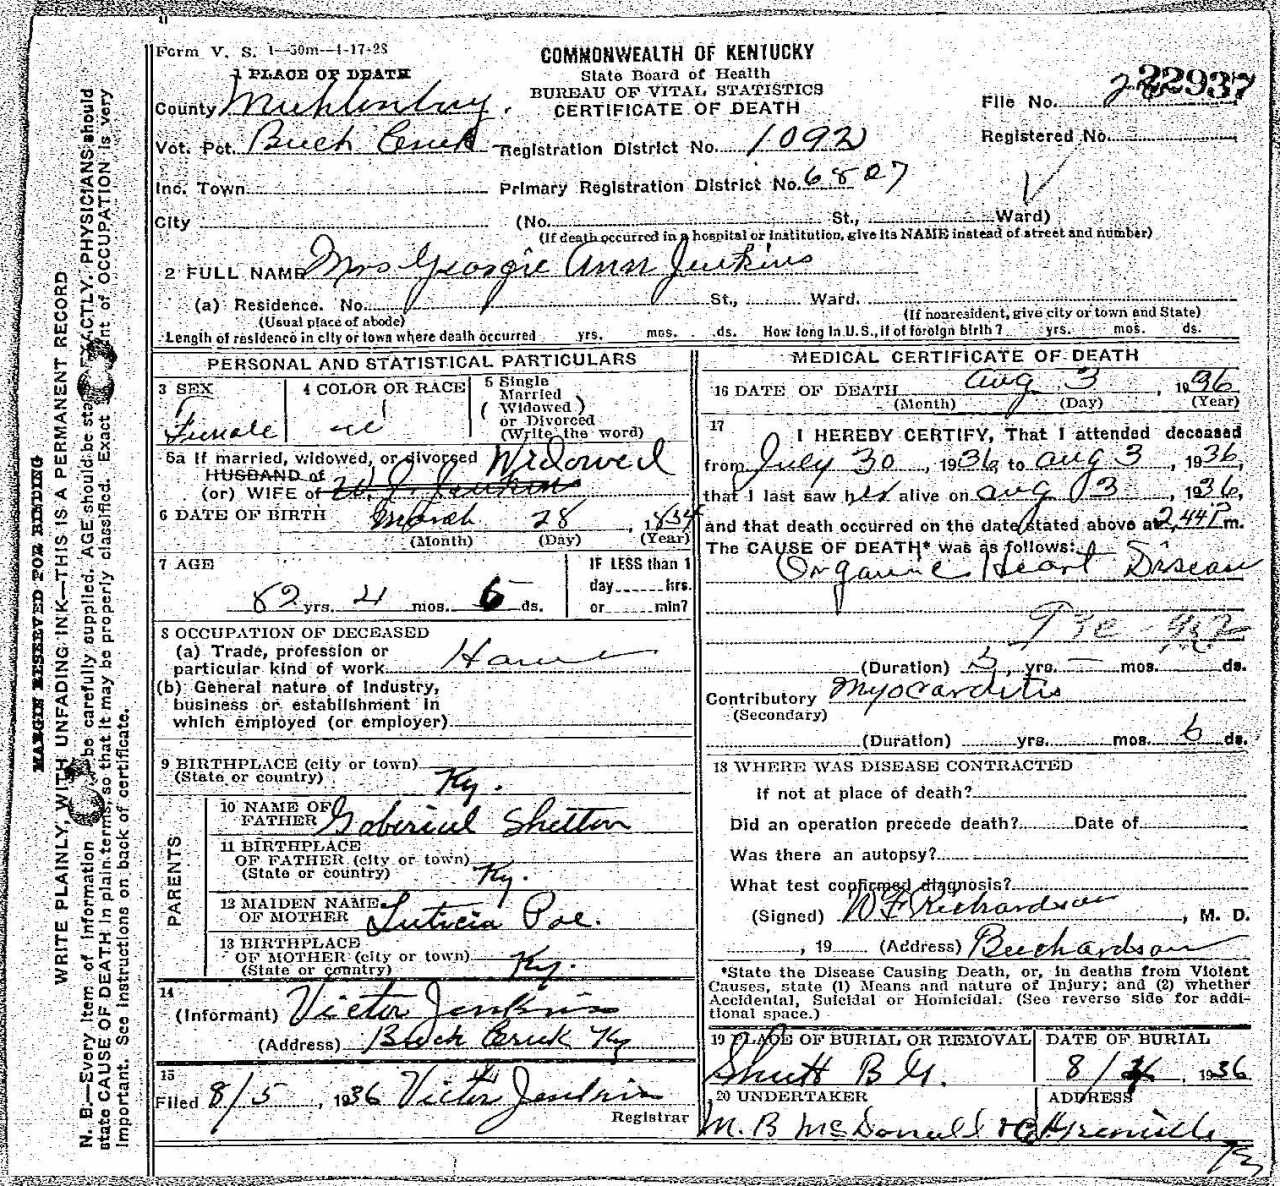 Form V. S. 1—50m—1-17-28
COMMONWEALTH OF KENTUCKY
State Board of Health
BUREAU OF VITAL STATISTICS
CERTIFICATE OF DEATH
File No. 22937
Registered No.
1 PLACE OF DEATH
County Muhlenburg.
Vot. Pct. Beech Creek Registration District No. 1092
Inc. Town Primary Registration District No. 6807
City (No. St., Ward)
(If death occurred in a hospital or institution, give its NAME instead of street and number)
2 FULL NAME Mrs Georgie Ann Jenkins
(a) Residence. No. St., Ward.
(Usual place of abode) (If nonresident, give city or town and State)
Length of residence in city or town where death occurred yrs. mos. ds. How long in U.S., if of foreign birth? yrs. mos. ds.
PERSONAL AND STATISTICAL PARTICULARS
3 SEX
Female
4 COLOR OR RACE
5 Single
Married
(Widowed)
or Divorced
(Write the word)
Widowed
5a If married, widowed, or divorced
HUSBAND of
(or) WIFE of W. J. Jenkins
6 DATE OF BIRTH March 28, 1854
(Month) (Day) (Year)
7 AGE
82 yrs. 4 mos. 6 ds.
IF LESS than 1
day hrs.
or min?
8 OCCUPATION OF DECEASED
(a) Trade, profession or
particular kind of work
(b) General nature of industry,
business or establishment in
which employed (or employer)
9 BIRTHPLACE (city or town)
(State or country) Ky.
PARENTS
10 NAME OF
FATHER Goberieul Shelton
11 BIRTHPLACE
OF FATHER (city or town)
(State or country) Ky.
12 MAIDEN NAME
OF MOTHER Luticia Poe.
13 BIRTHPLACE
OF MOTHER (city or town)
(State or country) Ky.
14
(Informant) Victor Jenkins
(Address) Beech Creek Ky
15
Filed 8/5, 1936 Victor Jenkins
Registrar
MEDICAL CERTIFICATE OF DEATH
16 DATE OF DEATH Aug 3, 1936
(Month) (Day) (Year)
17
I HEREBY CERTIFY, That I attended deceased
from July 30, 1936 to Aug 3, 1936,
that I last saw her alive on Aug 3, 1936,
and that death occurred on the date stated above at 2,44 P.m.
The CAUSE OF DEATH* was as follows:
Organic Heart Disease
(Duration) 5 yrs. — mos. ds.
Contributory Myocarditis
(Secondary)
(Duration) yrs. mos. 6 ds.
18 WHERE WAS DISEASE CONTRACTED
If not at place of death?
Did an operation precede death? Date of
Was there an autopsy?
What test confirmed diagnosis?
(Signed) W F Richardson, M. D.
, 19 (Address)
*State the Disease Causing Death, or, in deaths from Violent
Causes, state (1) Means and nature of Injury; and (2) whether
Accidental, Suicidal or Homicidal. (See reverse side for addi-
tional space.)
19 PLACE OF BURIAL OR REMOVAL
Shutt B G.
DATE OF BURIAL
8/4, 1936
20 UNDERTAKER
M. B McDonald & Co
ADDRESS
Greenville
Ky
MARGIN RESERVED FOR BINDING
WRITE PLAINLY, WITH UNFADING INK—THIS IS A PERMANENT RECORD
N. B.—Every item of information be carefully supplied. AGE should be sta EXACTLY. PHYSICIANS should
state CAUSE OF DEATH in plain terms, so that it may be properly classified. Exact nt of OCCUPATION is very
important. See instructions on back of certificate.